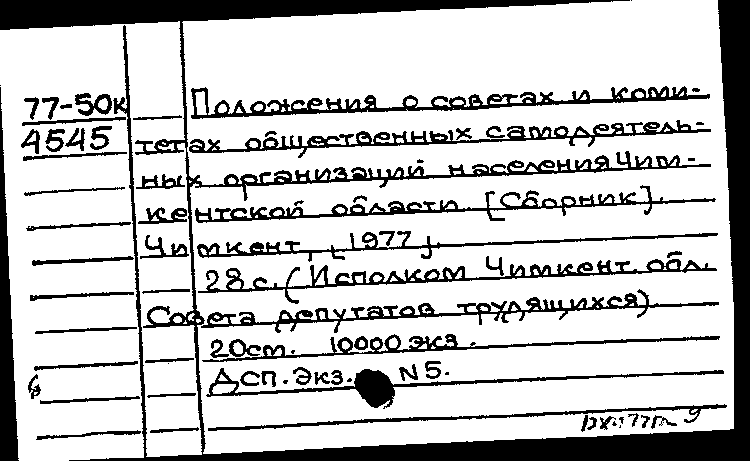 77-50к Положения о советах и коми-
4545 тетах общественных самодеятель-
ных организаций населения Чим-
кентской области. [Сборник].
Чимкент, [1977].
28 с. (Исполком Чимкент. обл.
Совета депутатов трудящихся).
20см. 10000 экз.
Дсп. Экз. N5.
9